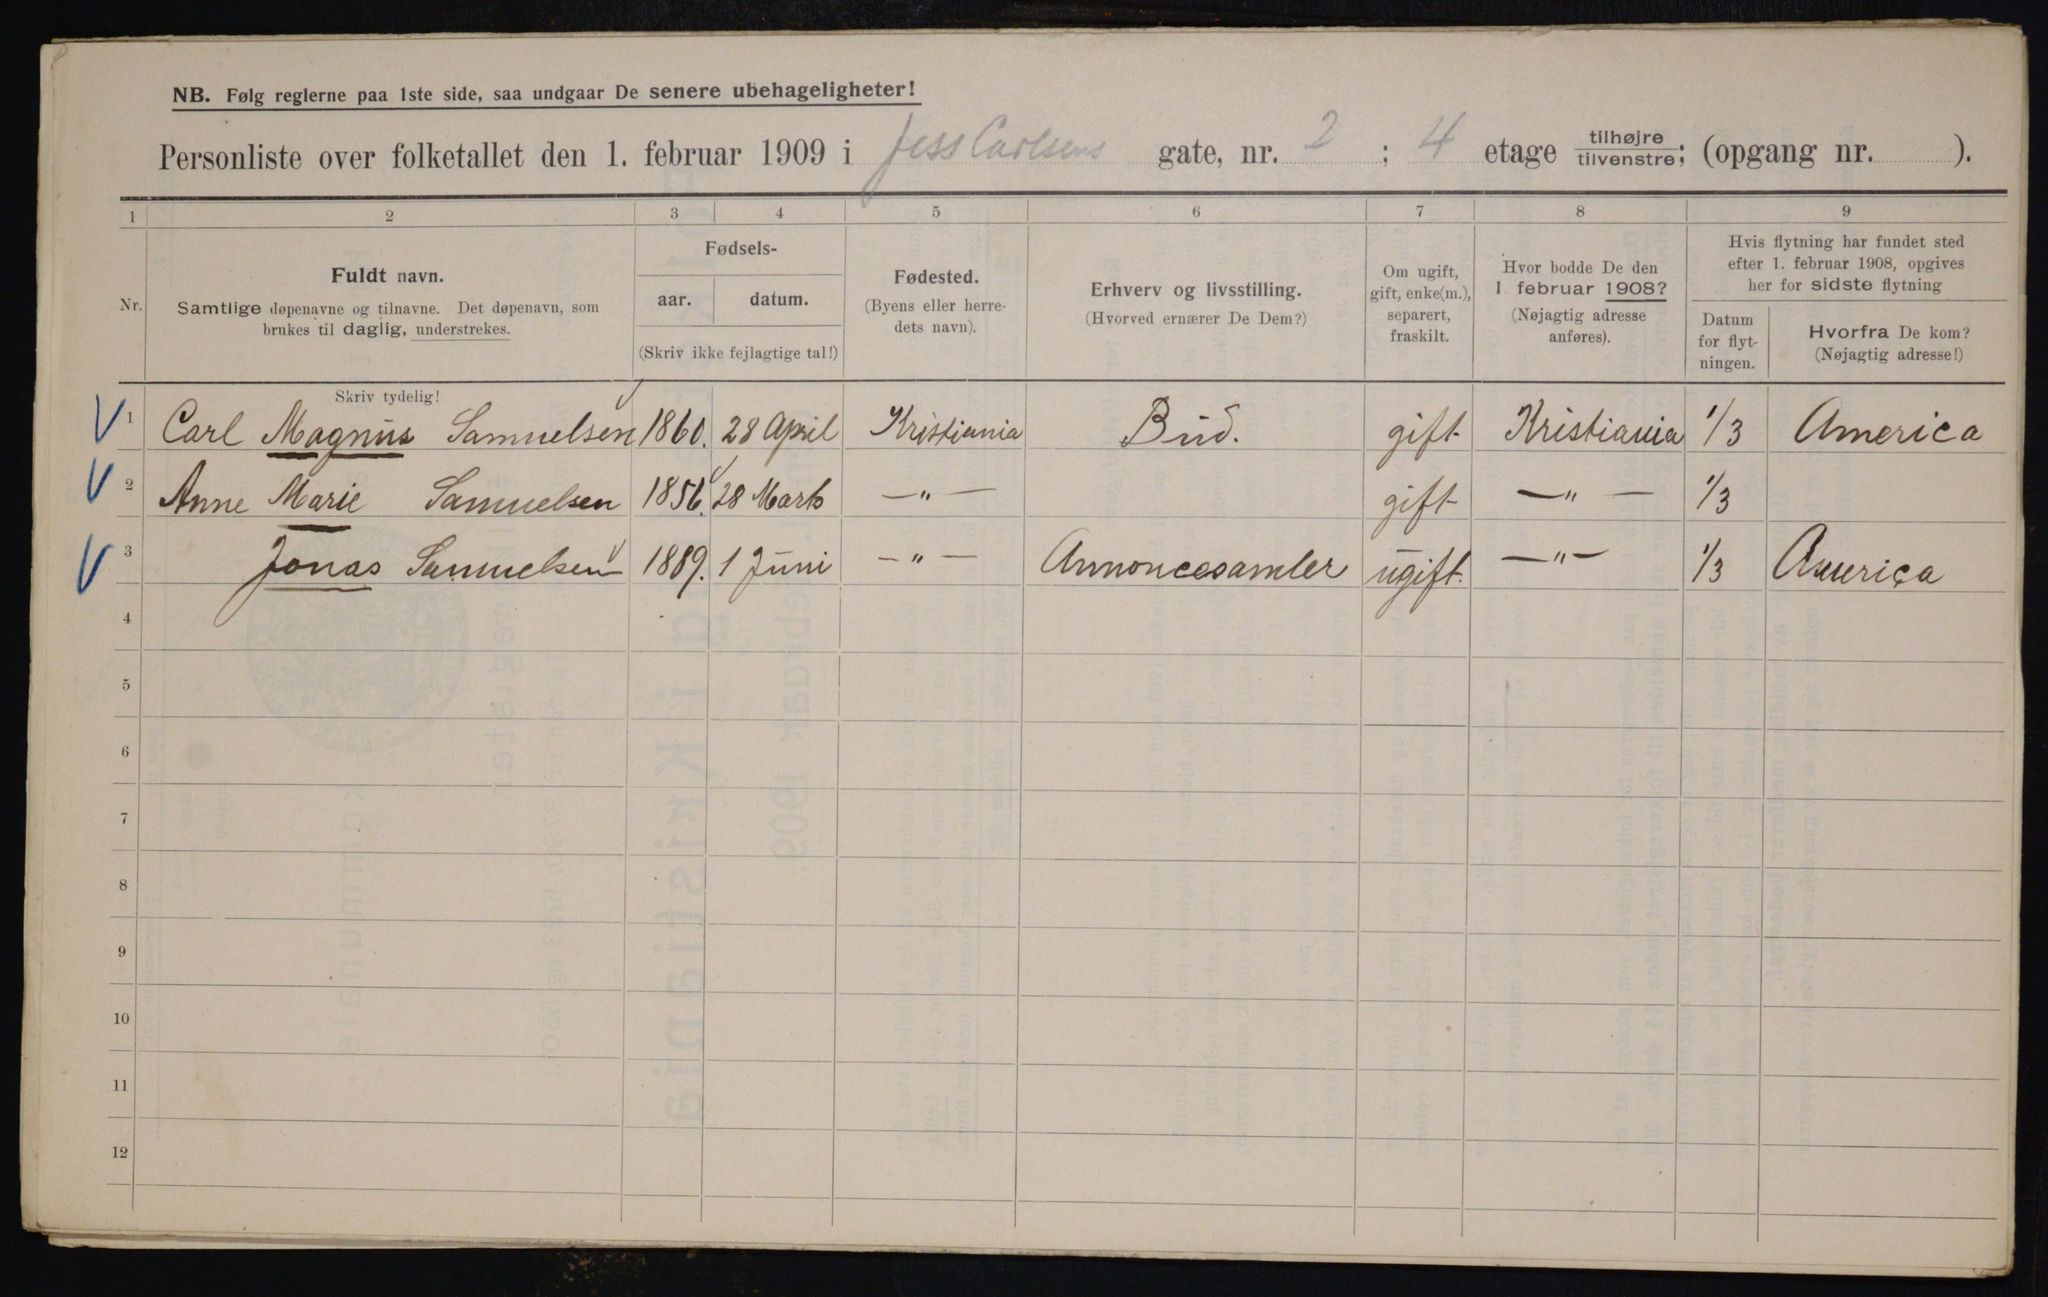 NB. Følg reglerne paa 1ste side, saa undgaar De senere ubehageligheter!
Personliste over folketallet den 1. februar 1909 i Jess Carlsens gate, nr. 2 ; 4 etage tilhøjre/tilvenstre; (opgang nr. ).
1 2 3 4 5 6 7 8 9
Nr.
Fuldt navn.
Samtlige døpenavne og tilnavne. Det døpenavn, som
brukes til daglig, understrekes.
Fødsels-
aar. datum.
(Skriv ikke fejlagtige tal!)
Fødested.
(Byens eller herre-
dets navn).
Erhverv og livsstilling.
(Hvorved ernærer De Dem?)
Om ugift,
gift, enke(m.),
separert,
fraskilt.
Hvor bodde De den
1 februar 1908?
(Nøjagtig adresse
anføres).
Hvis flytning har fundet sted
efter 1. februar 1908, opgives
her for sidste flytning
Datum
for flyt-
ningen.
Hvorfra De kom?
(Nøjagtig adresse!)
Skriv tydelig!
1 Carl Magnus Samuelsen 1860. 28 April Kristiania Bud. gift Kristiania 1/3 America
2 Anne Marie Samuelsen 1856. 28 Marts —"— gift —"— 1/3
3 Jonas Samuelsen 1889. 1 Juni —"— Annoncesamler ugift. —"— 1/3 America
4
5
6
7
8
9
10
11
12